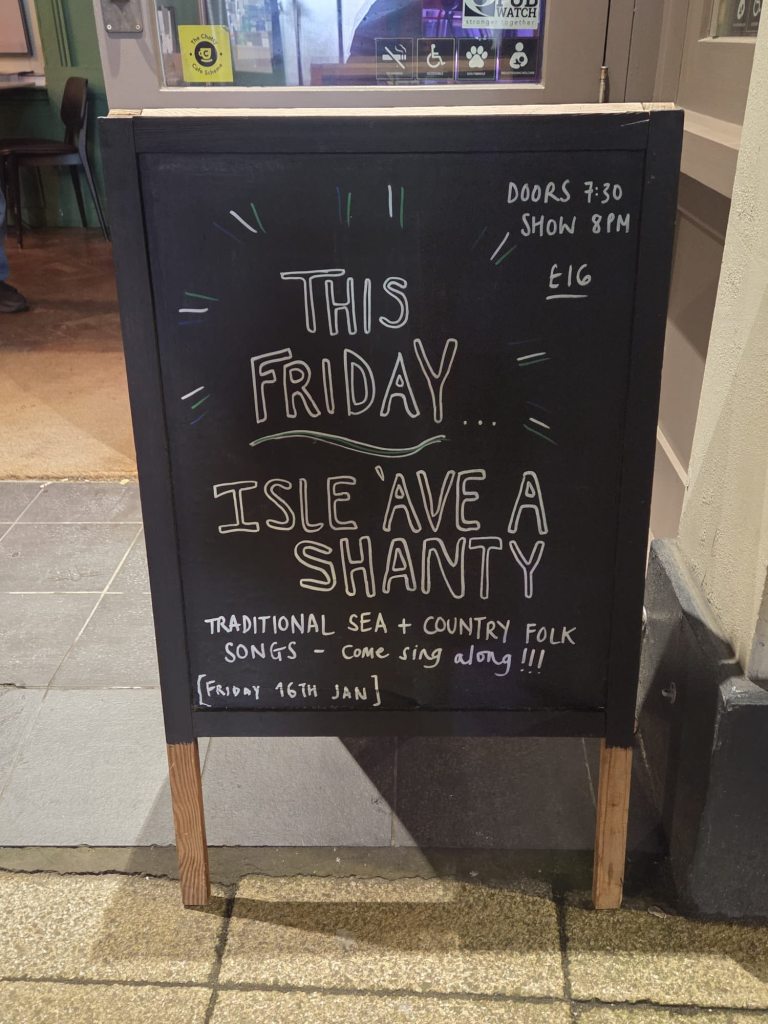 The Chatty
Cafe Scheme
PUB
WATCH
stronger together
DOORS 7:30
SHOW 8PM
£16
THIS
FRIDAY...
ISLE 'AVE A
SHANTY
TRADITIONAL SEA + COUNTRY FOLK
SONGS - come sing along!!!
[FRIDAY 16TH JAN]